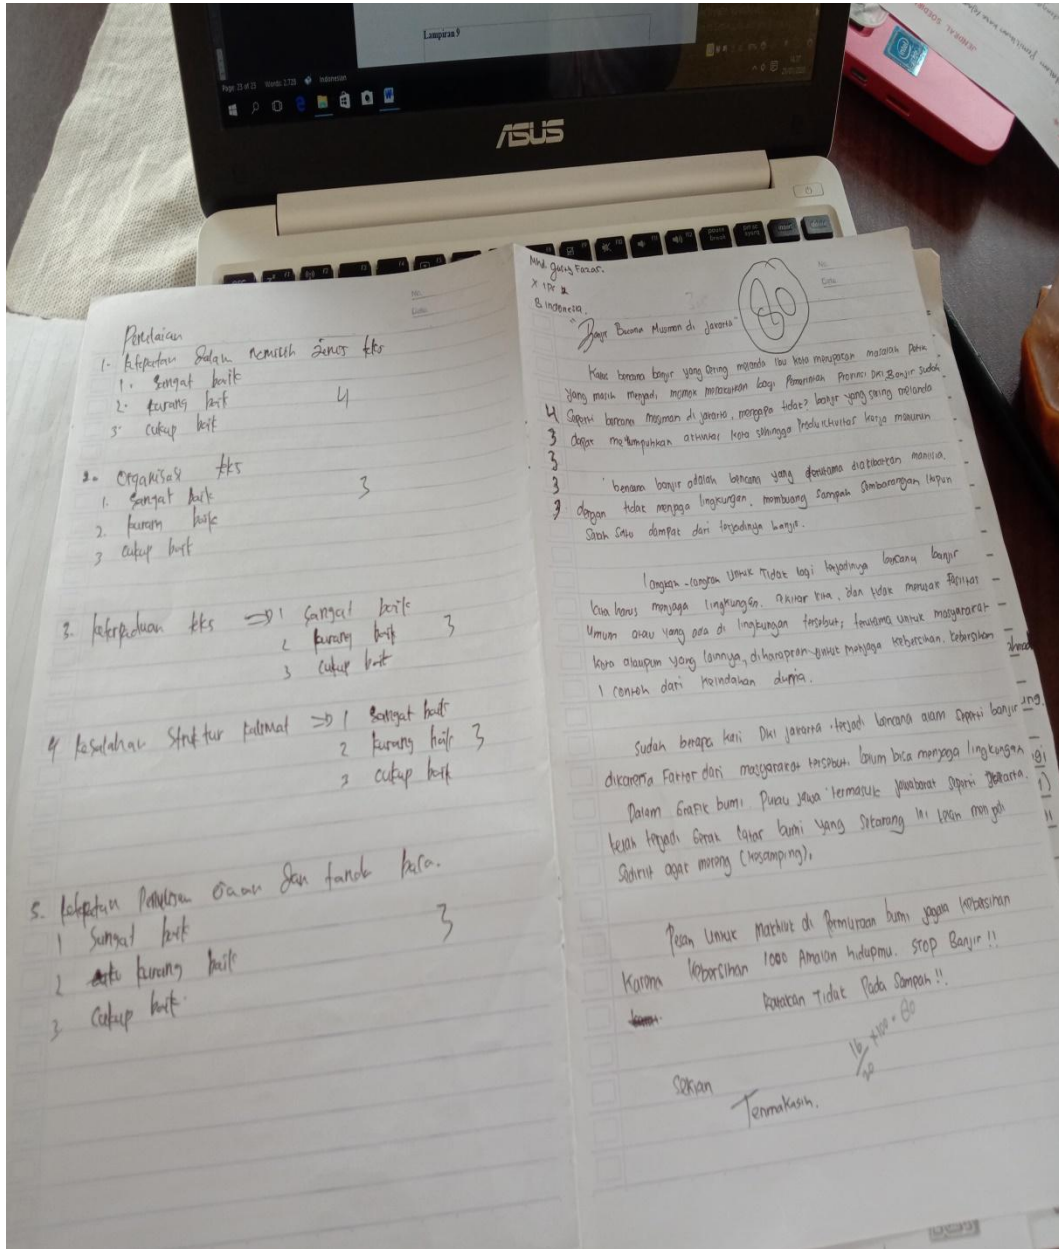 Lampiran 9
Page 23 of 23 Words: 2.728 Indonesian
ASUS
No.
Date
Penilaian
1. ketepatan dalam memilih Jenis teks
1. Sangat baik
2. kurang baik 4
3. cukup baik
2. Organisasi teks
1. Sangat baik 3
2. kurang baik
3 cukup baik
3. keterpaduan teks => 1 Sangat baik
2 kurang baik 3
3 cukup baik
4 kesalahan Struktur kalimat => 1 Sangat baik
2 kurang baik 3
3 cukup baik
5. ketepatan Penulisan ejaan dan tanda baca.
1 Sangat baik 3
2 kurang baik
3 Cukup baik.
Mhd. Fazar.
X IPK 2
B. Indonesia.
No.
Date
80
"Banjir Bencana Musiman di Jakarta"
Kasus bencana banjir yang sering melanda Ibu kota merupakan masalah
yang masih menjadi momok menakutkan bagi Pemerintah Provinsi DKI. Banjir sudah
4 Seperti bencana musiman di jakarta, mengapa tidak? banjir yang sering melanda
3 dapat melumpuhkan aktivitas kota sehingga Produktivitas kerja menurun
3
3 bencana banjir adalah bencana yang terutama diakibatkan manusia.
3 dengan tidak menjaga lingkungan, membuang sampah Sembarangan itupun
Salah Satu dampat dari terjadinya banjir.
langkah-langkah Untuk Tidak lagi terjadinya bencana banjir
kita harus menjaga lingkungan. sekitar kita, dan tidak merusak fasilitas
Umum atau yang ada di lingkungan tersebut, terutama untuk masyarakat
kota ataupun yang lainnya, diharapkan untuk menjaga kebersihan. kebersihan
1 contoh dari keindahan dunia.
Sudah berapa kali DKI jakarta terjadi bencana alam Seperti banjir
dikarena Faktor dari masyarakat tersebut. belum bisa menjaga lingkungan
Dalam Grafik bumi Pulau jawa termasuk jawabarat seperti jakarta.
telah terjadi Gerak bumi yang Sekarang ini
Sedikit agar moreng (kesamping).
Pesan Untuk Makhluk di Permukaan bumi jagala kebersihan
Karena kebersihan 1000 Amalan hidupmu. STOP Banjir!!
Katakan Tidak Pada Sampah!!
16/20 x100 = 80
Sekian
Terimakasih.